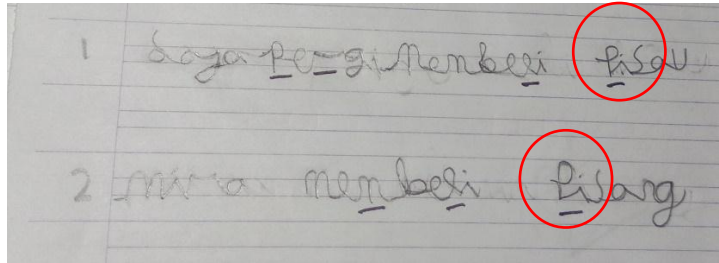 1 Saya pergi Menberi Pisau
2 mira menberi Pisang